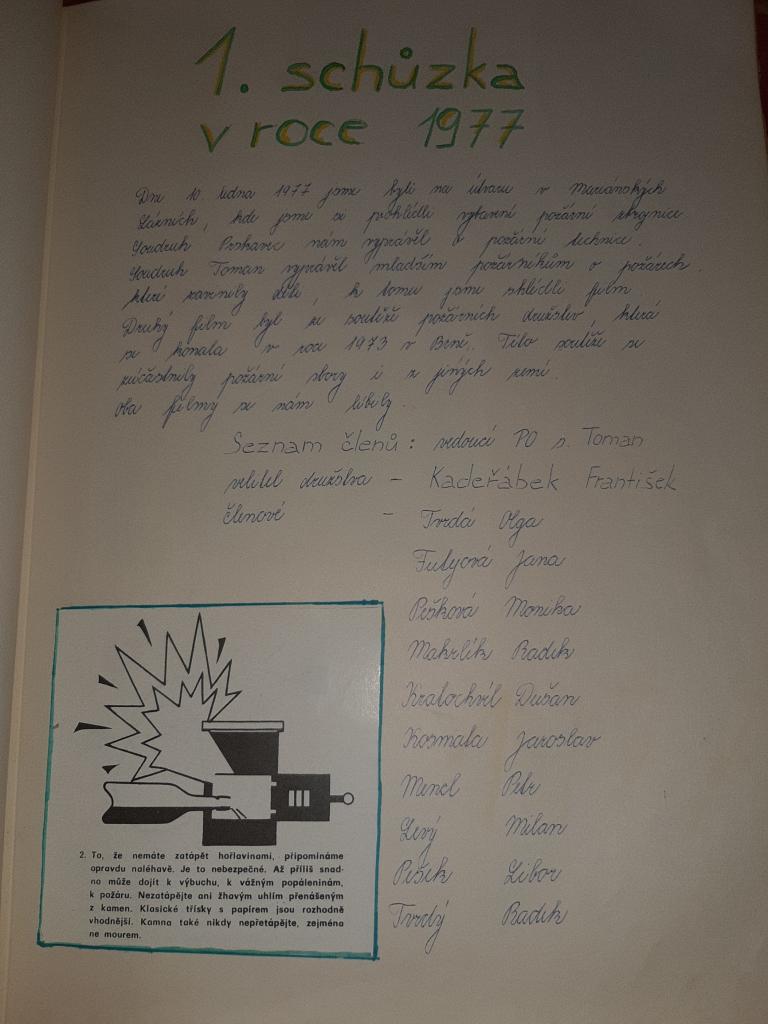 1. schůzka
v roce 1977
Dne 10. ledna 1977 jsme byli na útvaru v Mariánských
Lázních, kde jsme si prohlédli vybavení požární zbrojnice
Soudruh nám vyprávěl o požární technice.
Soudruh Toman vyprávěl mladším požárníkům o požárech,
které zavinily děti, k tomu jsme shlédli film
Druhý film byl ze soutěže požárních družstev, která
se konala v roce 1973 v Brně. Této soutěže se
zúčastnily požární sbory i z jiných zemí.
Oba filmy se nám líbily.
Seznam členů: vedoucí PO s. Toman
velitel družstva - Kadeřábek František
členové - Tvrdá Olga
Futyová Jana
Pešková Monika
Makrlík Radek
Kratochvíl Dušan
Kosmata Jaroslav
Mencl Petr
Levý Milan
Pešek Libor
Tvrdý Radek
2. To, že nemáte zatápět hořlavinami, připomínáme
opravdu naléhavě. Je to nebezpečné. Až příliš snad-
no může dojít k výbuchu, k vážným popáleninám,
k požáru. Nezatápějte ani žhavým uhlím přenášeným
z kamen. Klasické třísky s papírem jsou rozhodně
vhodnější. Kamna také nikdy nepřetápějte, zejména
ne mourem.